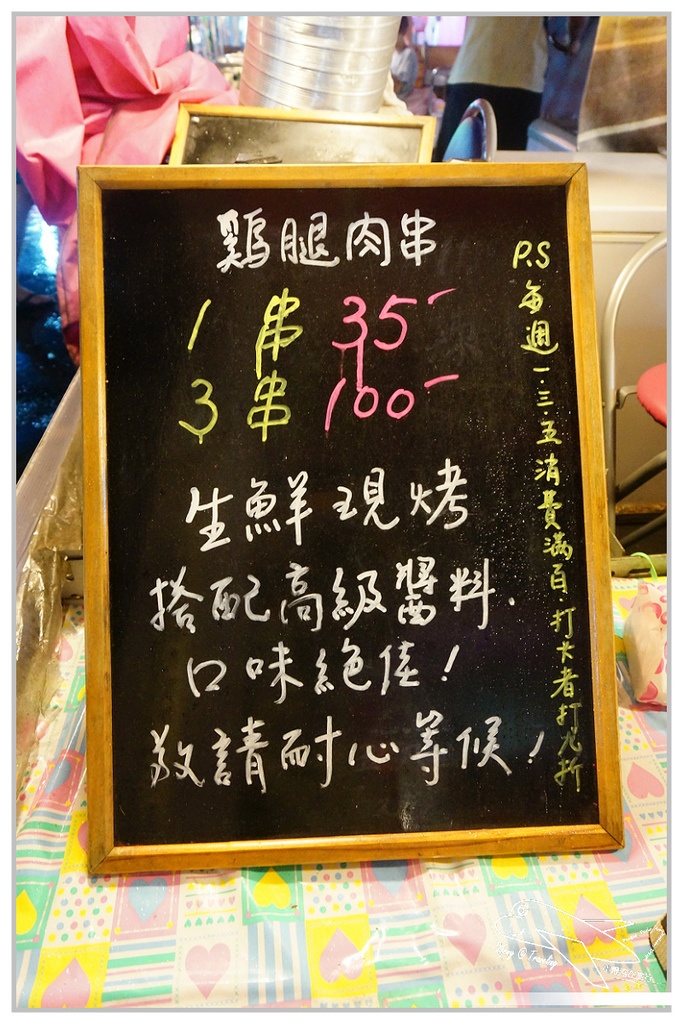 鷄腿肉串
1 串 35-
3 串 100-
生鮮現烤
搭配高級醬料.
口味絕佳!
敬請耐心等候!
P.S 每週一.三.五消費滿百.打卡者打九折